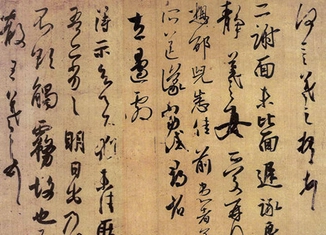 何言羲之頓首
二謝面未比面遲詠良
靜羲之女愛再
想邵兒悉佳前患者善
所送議當試尋省
左邊劇
得示知足下猶未佳耿
吾亦劣劣明日出乃
不欲觸霧故也
散王羲之頓首